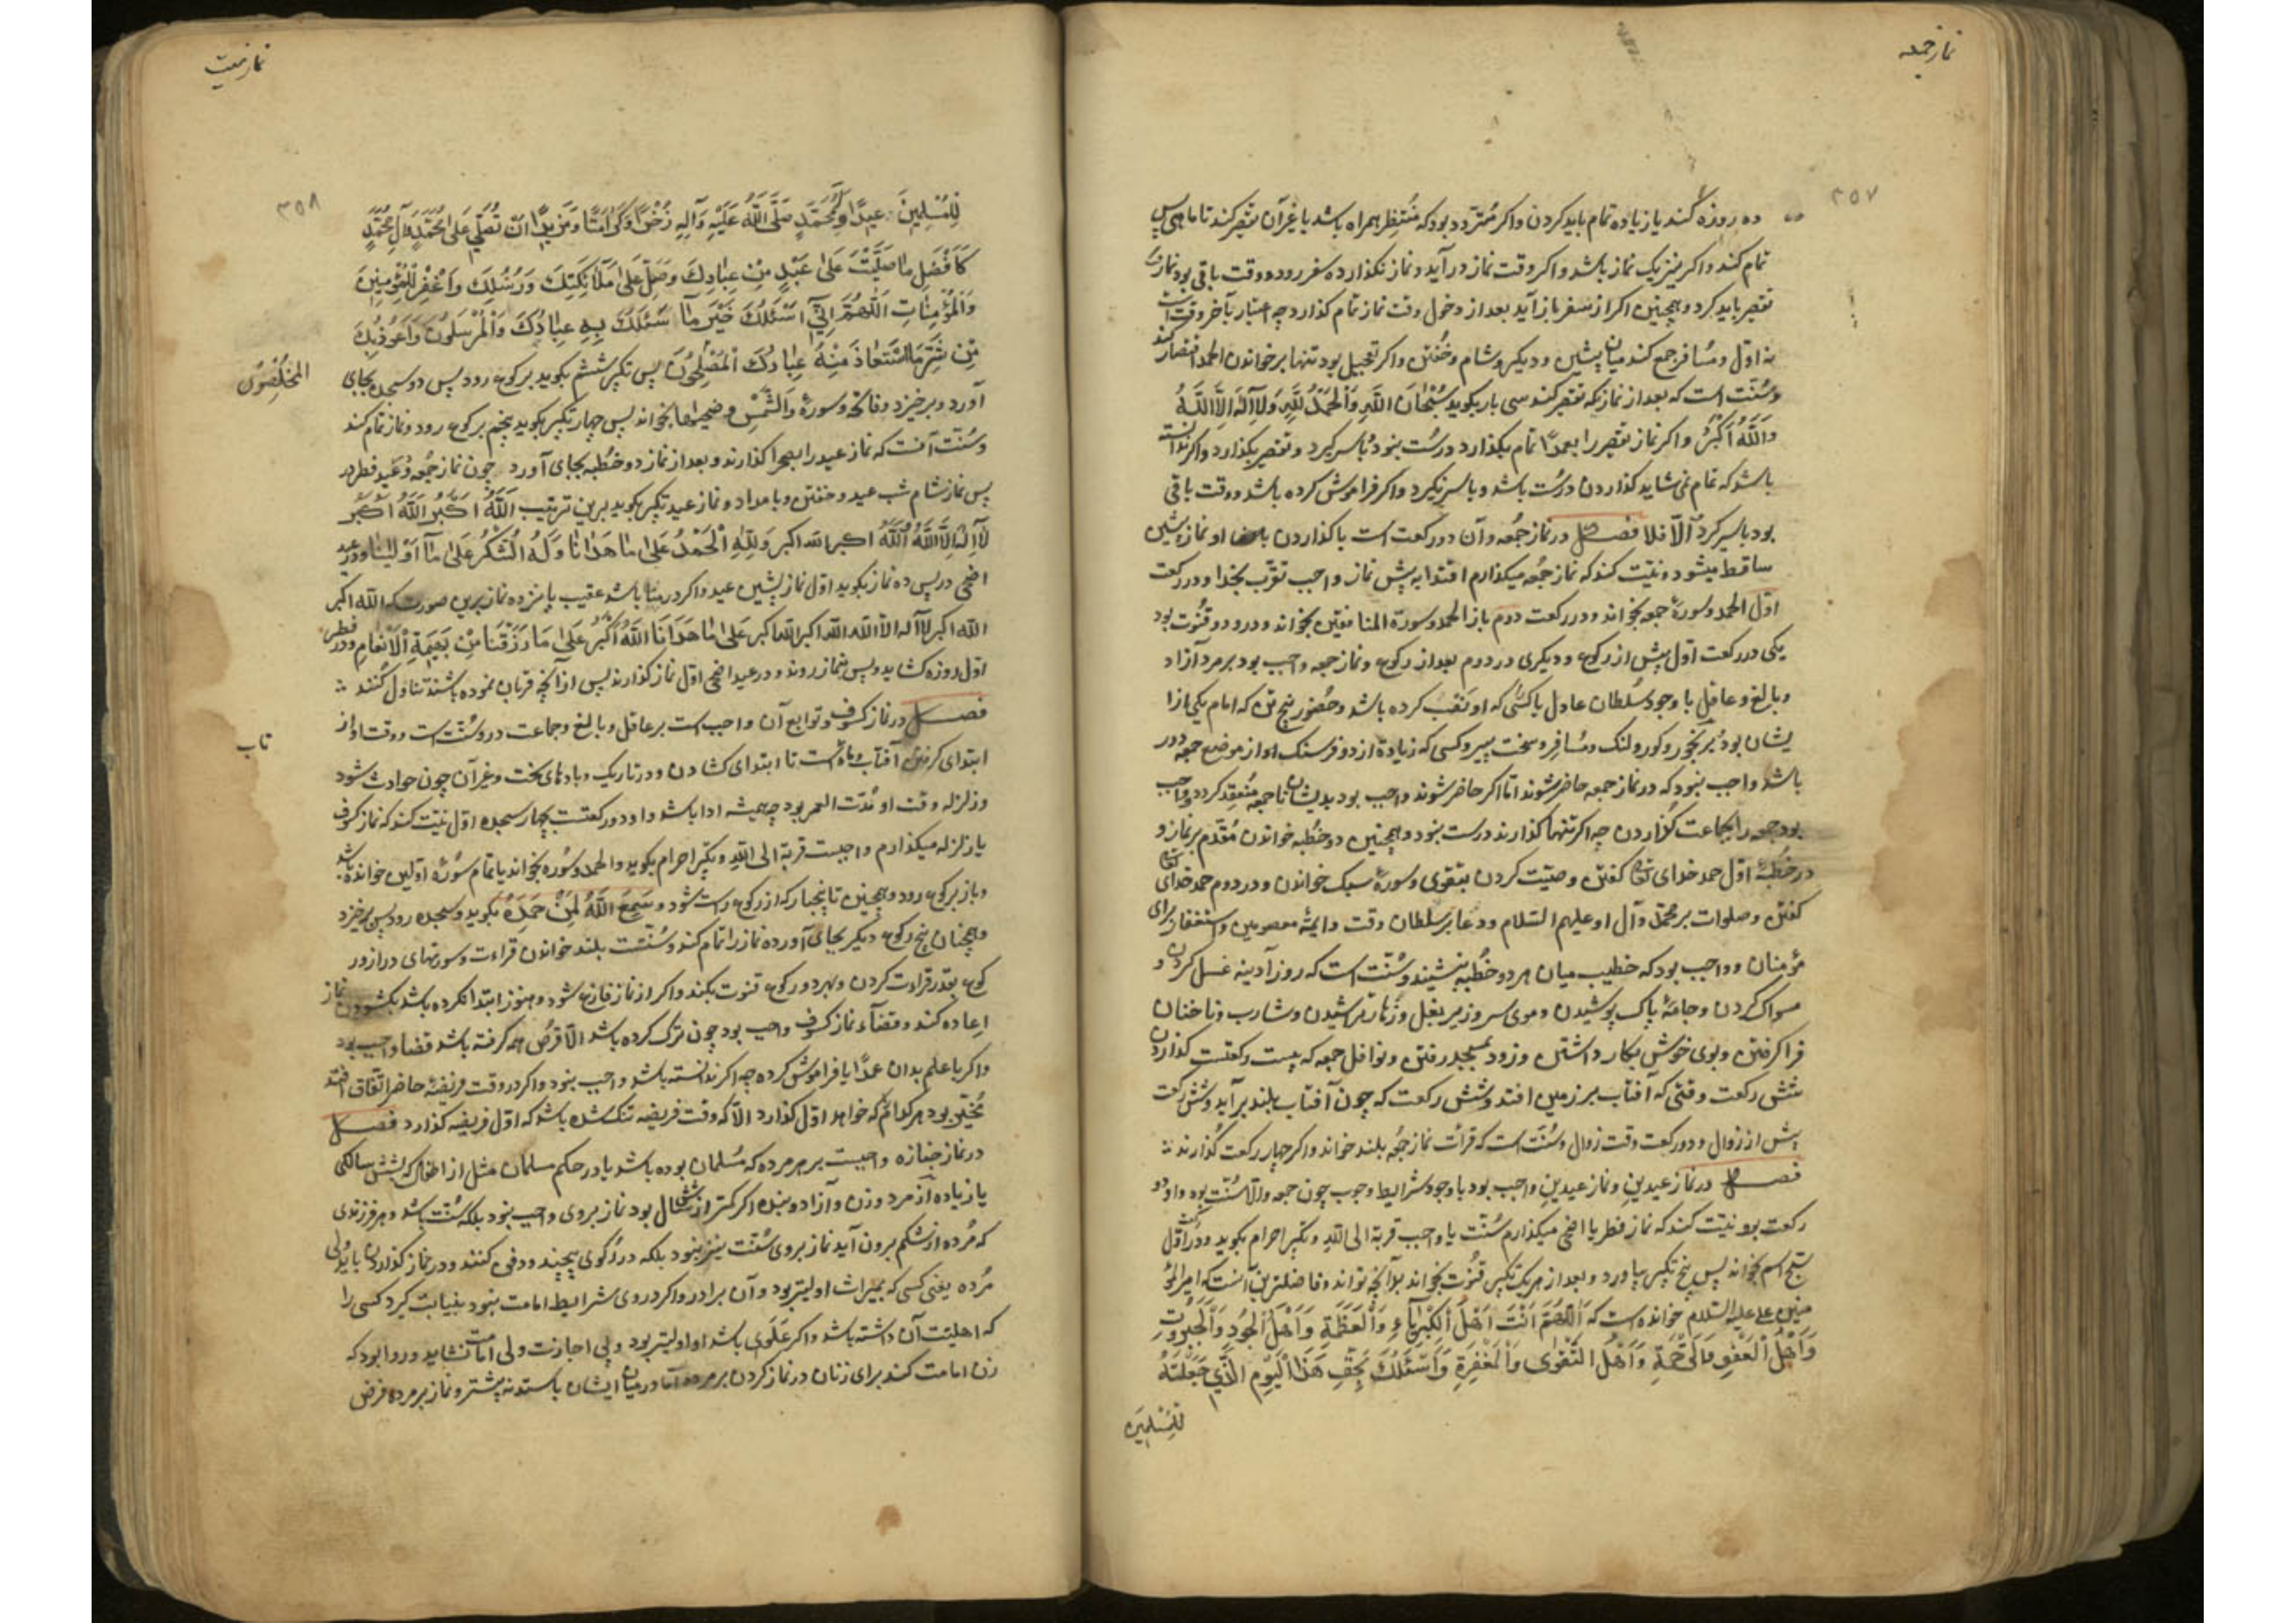 نماز جمعه
۳۵۷
ده روزه کند یا زیاده تمام باید کردن و اکر متردد بود که منتظر همراه باشد یا غیر آن تقصیر کند تا ماهی پس
تمام کند و اکر نیز یک نماز باشد و اکر وقت نماز در آید و نماز نکذارده سفر رود و وقت باقی بود نماز را
تقصیر باید کرد و همچنین اکر از سفر باز آید بعد از دخول وقت نماز تمام کذارد چه اعتبار بآخر وقت است
نه اول و مسافر جمع کند میان پیشین و دیکر و شام و خفتن و اکر تعجیل بود تنها بر خواندن الحمد اقتصار کند
و سنت است که بعد از نماز که تقصیر کند سی بار بکوید سُبْحَانَ اللّٰهِ وَالْحَمْدُ لِلّٰهِ وَلَا اِلٰهَ اِلَّا اللّٰهُ
وَاللّٰهُ اَکْبَرُ و اکر نماز تقصیر را بعمدا تمام بکذارد درست نبود با سر کیرد و تقصیر بکذارد و اکر ندانسته
باشد که تمام نمی شاید کذاردن درست باشد و با سر نکیرد و اکر فراموش کرده باشد و وقت باقی
بود با سر کیرد الّا فلا فصل در نماز جمعه و آن دو رکعت است با کذاردن او نماز پیشین
ساقط میشود و نیت کند که نماز جمعه میکذارم اقتدا به پیش نماز واجب تقرب بخدا و در رکعت
اول الحمد و سورهٔ جمعه بخواند و در رکعت دوم باز الحمد و سورة المنافقین بخواند و درو دو قنوت بود
یکی در رکعت اول پیش از رکوع و دیکری در دوم بعد از رکوع و نماز جمعه واجب بود بر مرد آزاد
و بالغ و عاقل با وجود سلطان عادل یا کسی که او نصب کرده باشد و حضور پنج تن که امام یکی از ا
یشان بود بر رنجور و کور و لنک و مسافر و سخت پیر و کسی که زیاده از دو فرسنک او از موضع جمعه دور
باشد واجب نبود که در نماز جمعه حاضر شوند اما اکر حاضر شوند واجب بود بدیشان تا جمعه منعقد کردد و واجب
بود جمعه را بجماعت کذاردن چه اکر تنها کذارند درست نبود و همچنین دو خطبه خواندن مقدم بر نماز و
در خطبهٔ اول حمد خدای تعالی کفتن و وصیت کردن بتقوی و سورهٔ سبک خواندن و در دوم حمد خدای تعالی
کفتن و صلوات بر محمد و آل او علیهم السلام و دعا بر سلطان وقت و ایمهٔ معصومین و استغفار برای
مؤمنان و واجب بود که خطیب میان هر دو خطبه بنشیند و سنت است که روز آدینه غسل کردن و
مسواک کردن و جامهٔ پاک پوشیدن و موی سر و زیر بغل و زهار تراشیدن و شارب و ناخنان
فرا کرفتن و بوی خوش بکار داشتن و زود بمسجد رفتن و نوافل جمعه که بیست رکعتست کذاردن
شش رکعت وقتی که آفتاب بر زمین افتد و شش رکعت که چون آفتاب بلند بر آید و شش رکعت
پیش از زوال و دو رکعت وقت زوال و سنت است که قرائت نماز جمعه بلند خواند و اکر چهار رکعت کذارند
فصل در نماز عیدین و نماز عیدین واجب بود با وجود شرایط وجوب چون جمعه والا سنت بود و او دو
رکعت بود نیت کند که نماز فطر یا اضحی میکذارم سنت یا واجب قربة الی اللّٰه و تکبیر احرام بکوید و در رکعت اول
سبح اسم بخواند پس پنج تکبیر بیاورد و بعد از هر یک تکبیر قنوت بخواند بدانچه تواند و فاضلترین آنست که امیر المؤ
منین علی علیه السلام خوانده است که اَللّٰهُمَّ اَنْتَ اَهْلَ الْکِبْرِیَاءِ وَالْعَظَمَةِ وَاَهْلَ الْجُودِ وَالْجَبَرُوتِ
وَاَهْلَ الْعَفْوِ وَالرَّحْمَةِ وَاَهْلَ التَّقْوٰی وَالْمَغْفِرَةِ وَاَسْئَلُکَ بِحَقِّ هَذَا الْیَوْمِ الَّذِی جَعَلْتَهُ
لِلْمُسْلِمِینَ
نماز میت
۳۵۸
لِلْمُسْلِمِینَ عِیدًا وَلِمُحَمَّدٍ صَلَّی اللّٰهُ عَلَیْهِ وَآلِهِ ذُخْرًا وَکَرَامَتًا وَمَزِیدًا اَنْ تُصَلِّیَ عَلٰی مُحَمَّدٍ وَآلِ مُحَمَّدٍ
کَاَفْضَلِ مَا صَلَّیْتَ عَلٰی عَبْدٍ مِنْ عِبَادِکَ وَصَلِّ عَلٰی مَلَائِکَتِکَ وَرُسُلِکَ وَاغْفِرْ لِلْمُؤْمِنِینَ
وَالْمُؤْمِنَاتِ اَللّٰهُمَّ اِنِّی اَسْئَلُکَ خَیْرَ مَا سَئَلَکَ بِهِ عِبَادُکَ وَالْمُرْسَلُونَ وَاَعُوذُ بِکَ
مِنْ شَرِّ مَا اسْتَعَاذَ مِنْهُ عِبَادُکَ الْمُصْلِحُونَ پس تکبیر ششم بکوید بر کوع رود پس دو سجده بجای
المخلصون
آورد و برخیزد و فاتحه و سورهٔ والشمس وضحیها بخواند پس چهار تکبیر بکوید پنجم بر کوع رود و نماز تمام کند
و سنت آنست که نماز عید را بصحرا کذارند و بعد از نماز دو خطبه بجای آورد چون نماز جمعه و عید فطر در
پس نماز شام شب عید و خفتن و بامداد و نماز عید تکبیر بکوید برین ترتیب اَللّٰهُ اَکْبَرُ اَللّٰهُ اَکْبَرُ
لَا اِلٰهَ اِلَّا اللّٰهُ وَاللّٰهُ اکبر الله اکبر وَلِلّٰهِ الْحَمْدُ عَلٰی مَا هَدَانَا وَلَهُ الشُّکْرُ عَلٰی مَا اَوْلَینَا و در عید
اضحی در پس ده نماز بکوید اول نماز پیشین عید و اکر در منا باشد عقیب پانزده نماز برین صورت که الله اکبر
الله اکبر لا اله الا الله الله اکبر الله اکبر عَلٰی مَا هَدَانَا اَللّٰهُ اَکْبَرُ عَلٰی مَا رَزَقَنَا مِنْ بَهِیمَةِ الْاَنْعَامِ و در فطر
اول روزه کشاید و پس بنماز روند و در عید اضحی اول نماز کذارند پس از آنچه قربان نموده باشند تناول کنند
فصل در نماز کسوف و توابع آن واجب است بر عاقل و بالغ و جماعت درو سنت است و وقت او از
تاب
ابتدای کرفتن آفتاب و ماه است تا ابتدای کشادن و در تاریک و بادهای سخت و غیر آن چون حوادث شود
و زلزله وقت او مدت العمر بود چه همیشه ادا باشد و او دو رکعتست بچهار سجده اول نیت کند که نماز کسوف
یا زلزله میکذارم واجبست قربة الی الله و تکبیر احرام بکوید و الحمد و سوره بخواند یا تمام سورهٔ اولین خوانده باشد
و باز بر کوع رود و همچنین تا پنجبار که از رکوع راست شود و سَمِعَ اللّٰهُ لِمَنْ حَمِدَهُ بکوید و بسجده رود پس برخیزد
و همچنان پنج رکوع دیکر بجای آورده نماز را تمام کند و سنتست بلند خواندن قراءت و سورتهای دراز و ر
کوع بقدر قراءت کردن و بهر دو رکوع قنوت بکند و اکر از نماز فارغ شود و هنوز ابتدا نکرده باشد بکشودن نماز
اعاده کند و قضاء نماز کسوف واجب بود چون ترک کرده باشد الا قرص همه کرفته باشد قضا واجب بود
و اکر با علم بدان عمدًا یا فراموش کرده چه اکر ندانسته باشد واجب نبود و اکر در وقت فریضهٔ حاضر اتفاق افتد
مخیر بود هر کدام که خواهد اول کذارد الا که وقت فریضه تنک شده باشد که اول فریضه کذارد فصل
در نماز جنازه واجبست بر هر مرده که مسلمان بوده باشد یا در حکم مسلمان مثل از اطفال که بشش سالکی
یا زیاده از مرد و زن و آزاد و بنده اکر کمتر از شش سال بود نماز بر وی واجب نبود بلکه سنت باشد و هر فرزندی
که مرده از شکم برون آید نماز بر وی سنت نیز نبود بلکه در رکوی پیچند و دفن کنند و در نماز کذاردن باید ولی
مرده یعنی کسی که بمیراث اولیتر بود و آن برادر و اکر در وی شرایط امامت نبود بنیابت کیرد کسی را
که اهلیت آن داشته باشد و اکر علوی باشد او اولیتر بود و بی اجازت ولی امامت نشاید و روا بود که
زن امامت کند برای زنان در نماز کردن بر مرده اما در میان ایشان بایستد نه پیشتر و نماز بر مرده فرض